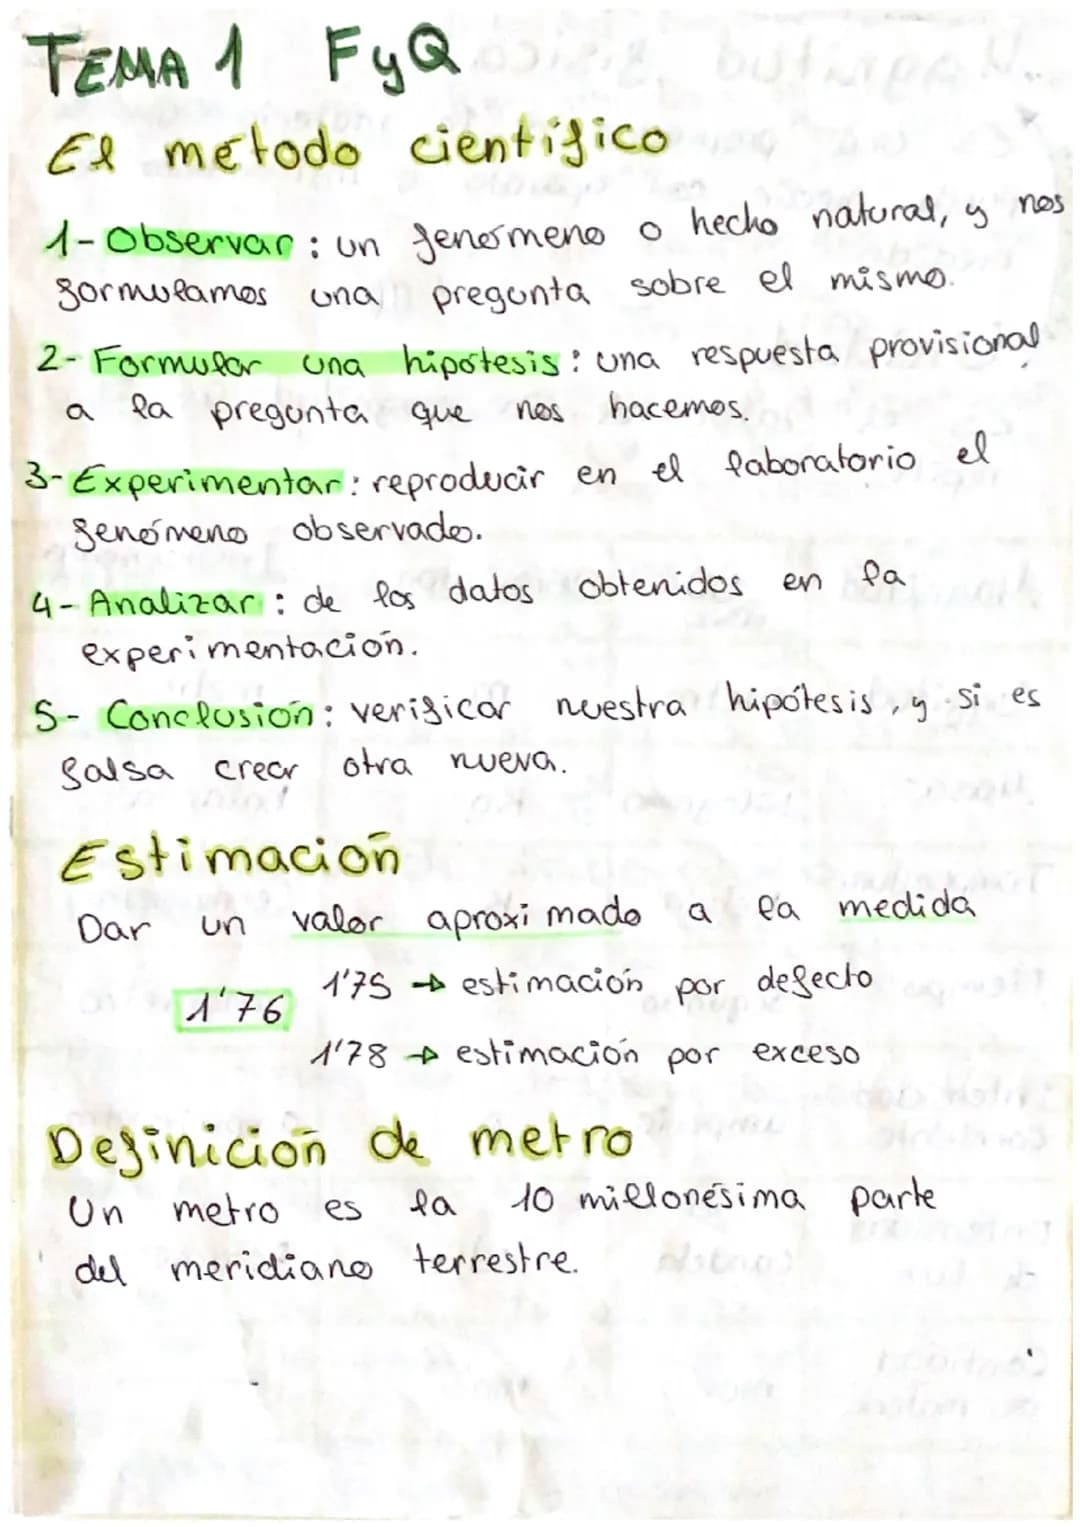 TEMA 1 FyQ
El método científico
1- Observar: un fenómeno o hecho natural, y nos
formulamos una pregunta sobre el mismo.
2- Formular una hipótesis: una respuesta provisional
a la pregunta que nos hacemos.
3- Experimentar: reproducir en el laboratorio el
fenómeno observado.
4- Analizar: de los datos obtenidos en la
experimentación.
5- Conclusión: verificar nuestra hipótesis, y si es
falsa crear otra nueva.
Estimación
Dar un valor aproximado a la medida
1'76
1'75 → estimación por defecto
1'78 → estimación por exceso
Definición de metro
Un metro es la 10 millonésima parte
del meridiano terrestre.